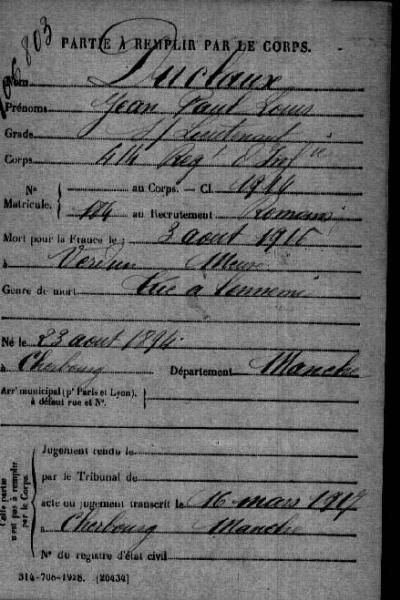 803
PARTIE À REMPLIR PAR LE CORPS.
Nom Duclaux
Prénoms Jean Paul Louis
Grade S/Lieutenant
Corps 414 Regt d'Inf ie
N° au Corps. — Cl. 1914
Matricule. 184 au Recrutement Romans
Mort pour la France le 3 aout 1916
à Verdun Meuse
Genre de mort Tué à l'ennemi
Né le 23 aout 1894
à Cherbourg Département Manche
Arr' municipal (p' Paris et Lyon),
à défaut rue et N°.
Cette partie n'est pas à remplir par le Corps.
Jugement rendu le
par le Tribunal de
acte ou jugement transcrit le 16 mars 1917
à Cherbourg Manche
N° du registre d'état civil
314-708-1928. [26434]